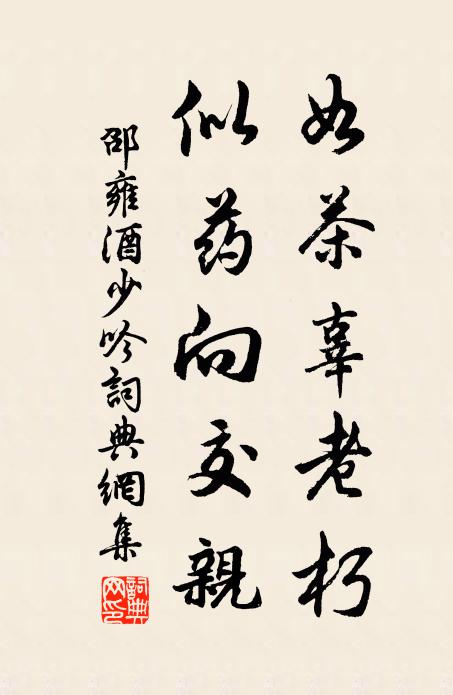 如茶辜老朽
似药向交親
邵雍酒少吟詞典網集
詞典网印